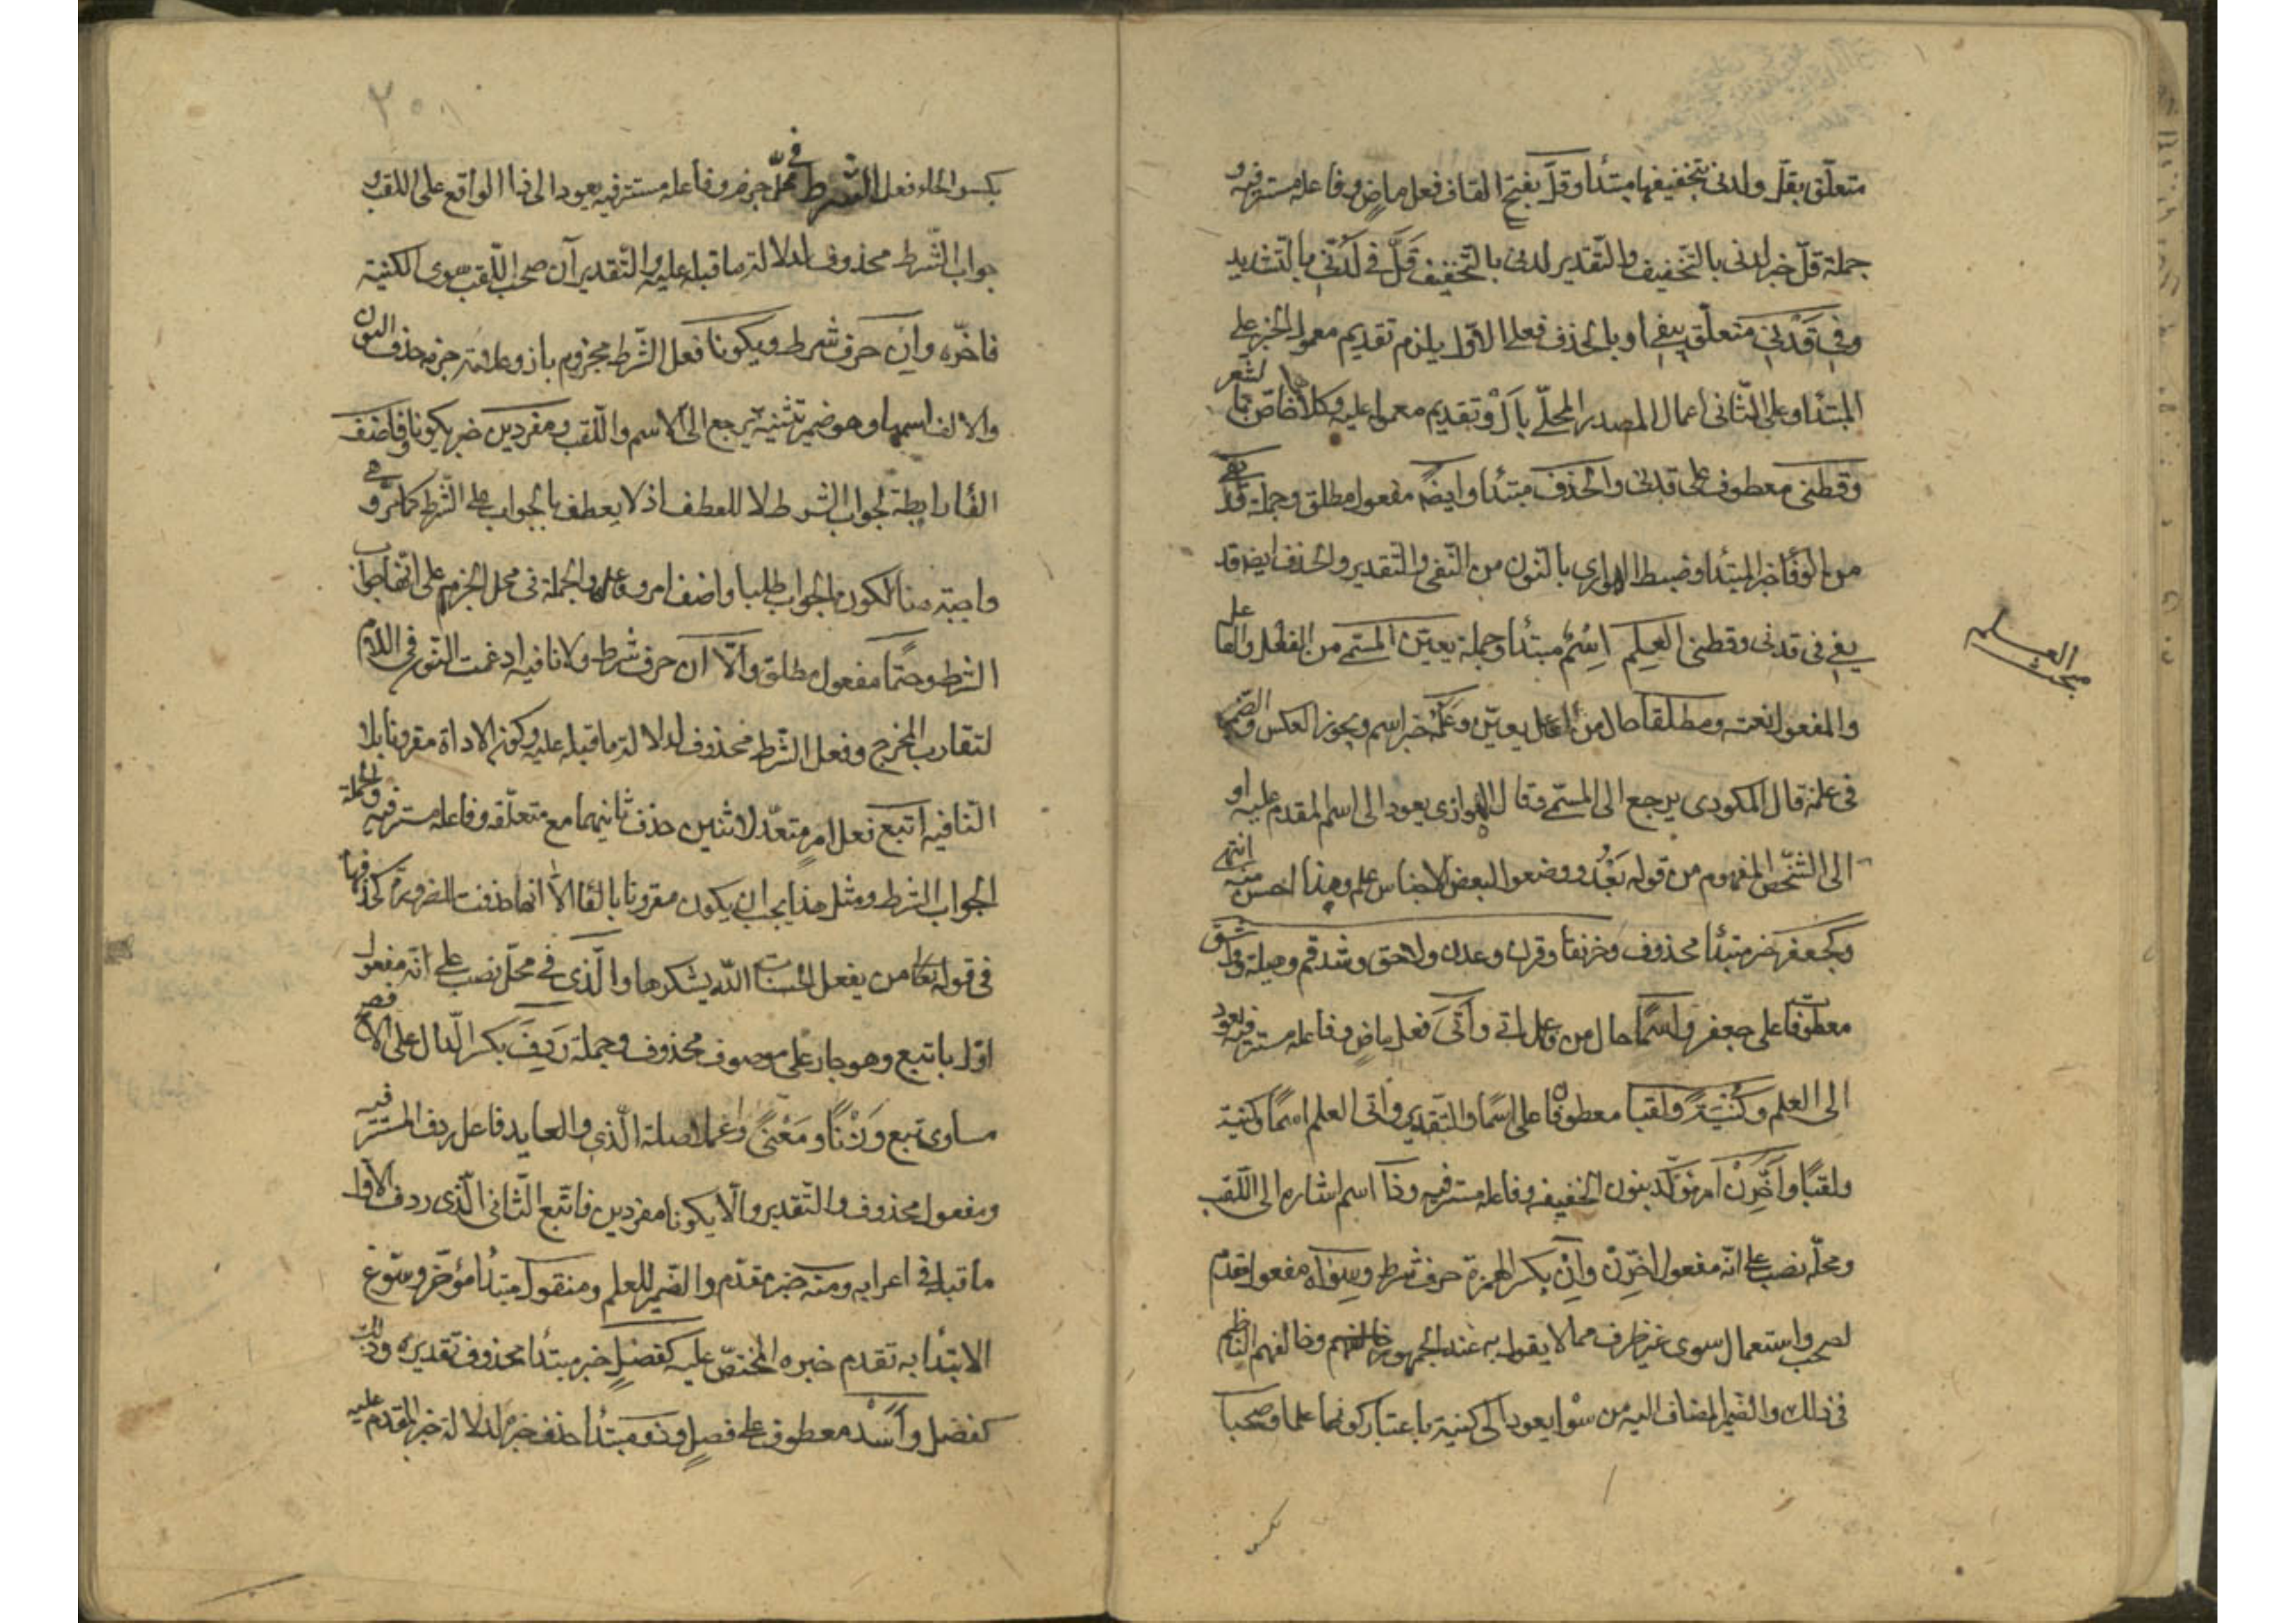 متعلّق بقلّ ولدنى بتخفيفها مبتدأ وقلّ بفتح القاف فعل ماض وفاعله مستتر فيه و
جملة قلّ خبر لدنى بالتخفيف والتقدير لدنى بالتخفيف قَلَّ فى لَدُنّى بالتشديد
وفى قَدْنى متعلّق بيفى او بالحذف فعلى الاوّل يلزم تقديم معمول الخبر على
المبتدأ وعلى الثانى اعمال المصدر المحلّى بأل وتقديم معموله عليه وكلاهما خاصّ بالشعر
وقطنى معطوف على قدنى والحذف مبتدأ وايضًا مفعول مطلق وجملة قد يفى
من الوفأ خبر المبتدأ وضبط الهوارى بالنون من النفى والتقدير والحذف ايضا قد
يفى فى قدنى وقطنى العلم اِسْمٌ مبتدأ وجملة يعيّن المسمّى من الفعل والفاعل
والمفعول نعته ومطلقا حال من فاعل يعيّن وعَلَمُه خبر اسم ويجوز العكس والضمير
فى علمه قال المكودى يرجع الى المسمّى وقال الهوازى يعود الى اسم المقدم عليه او
الى الشّخص المفهوم من قوله بَعْدُ ووضعوا لبعض الاجناس علم وهذا احسن منه انتهى
وكجعفر خبر مبتدأ محذوف وخرنقا وقرن وعدن ولاحق وشذقم وهيلة وواشق
معطوفات على جعفر واسمًا حال من فاعل اتى وأتَى فعل ماض وفاعله مستتر فيه يعود
الى العلم وكُنْيَةً ولقبا معطوفان على اسمًا والتقدير واتى العلم اسمًا وكنية
ولقبًا وأَخِّرَنْ امر مؤكّد بنون الخفيفه وفاعله مستتر فيه وذا اسم اشاره الى اللّقب
ومحلّه نصب على انّه مفعول اخّرن واِنْ بكسر الهمزة حرف شرط وسِوَاه مفعول مقدم
لصحب واستعمال سوى غير ظرف مما لا يقول به عند الجمهور وخالفهم الناظم
فى ذلك والضمير المضاف اليه من سوا يعود الى كنية باعتبار كونها علما وصحبا
بكسر
مبحث العلم
بكسر الحاء فعل الشرط فى محلّ جزم وفاعله مستتر فيه يعود الى ذا الواقع على اللقب و
جواب الشّرط محذوف لدلالة ما قبله عليه والتّقدير آن صحب اللّقب سوى الكنية
فاخّره وان حرف شرط ويكونا فعل الشّرط مجزوم بان وعلامة جزمه حذف النون
والالف اسمها وهو ضمير تثنية يرجع الى الاسم واللّقب ومفردين خبر يكونا وفاضف
الفأ رابطة لجواب الشرط لا للعطف اذ لا يعطف بالجواب على الشّرط كما مرّ وهى
واجبة هنا لكون الجواب طلبا واضف امر وفاعله والجملة فى محل الجزم على انّها جواب
الشرط وحتمًا مفعول مطلق والّا ان حرف شرط ولا نافيه ادغمت النون فى اللام
لتقارب المخرج وفعل الشّرط محذوف لدلالة ما قبله عليه وكون الاداة مقرونا بلا
النافيه اتبع فعل امر متعدّ لاثنين حذف ثانيهما مع متعلّقه وفاعله مستتر فيه والجملة
الجواب الشرط ومثل هذا يجب ان يكون مقرونا بالفأ الّا انها حذفت للضرورة كحذفها
فى قوله تعا من يفعل الحسنات اللّه يشكرها والّذى فى محلّ نصب على انّه مفعول
اوّل باتبع وهو جار على موصوف محذوف وجملة رَدِفَ بكسر الدّال على الافصح
مساوى تبع وَزْنًا ومَعْنىً وعملا صلة الّذى والعايد فاعل ردف المستتر فيه
ومفعول محذوف والتّقدير والّا يكونا مفردين فاتبع الثّانى الّذى ردف الاوّل
ما قبله فى اعرابه ومنه خبر مقدّم والضمير للعلم ومنقول مبتدأ مؤخّر وسوّغ
الابتدأ به تقدم خبره المختصّ عليه كفضلٍ خبر مبتدأ محذوف تقديره وذلك
كفضل وأَسَد معطوف على فضلٍ وذو مبتدأ حذف خبره لدلالة خبر المقدم عليه